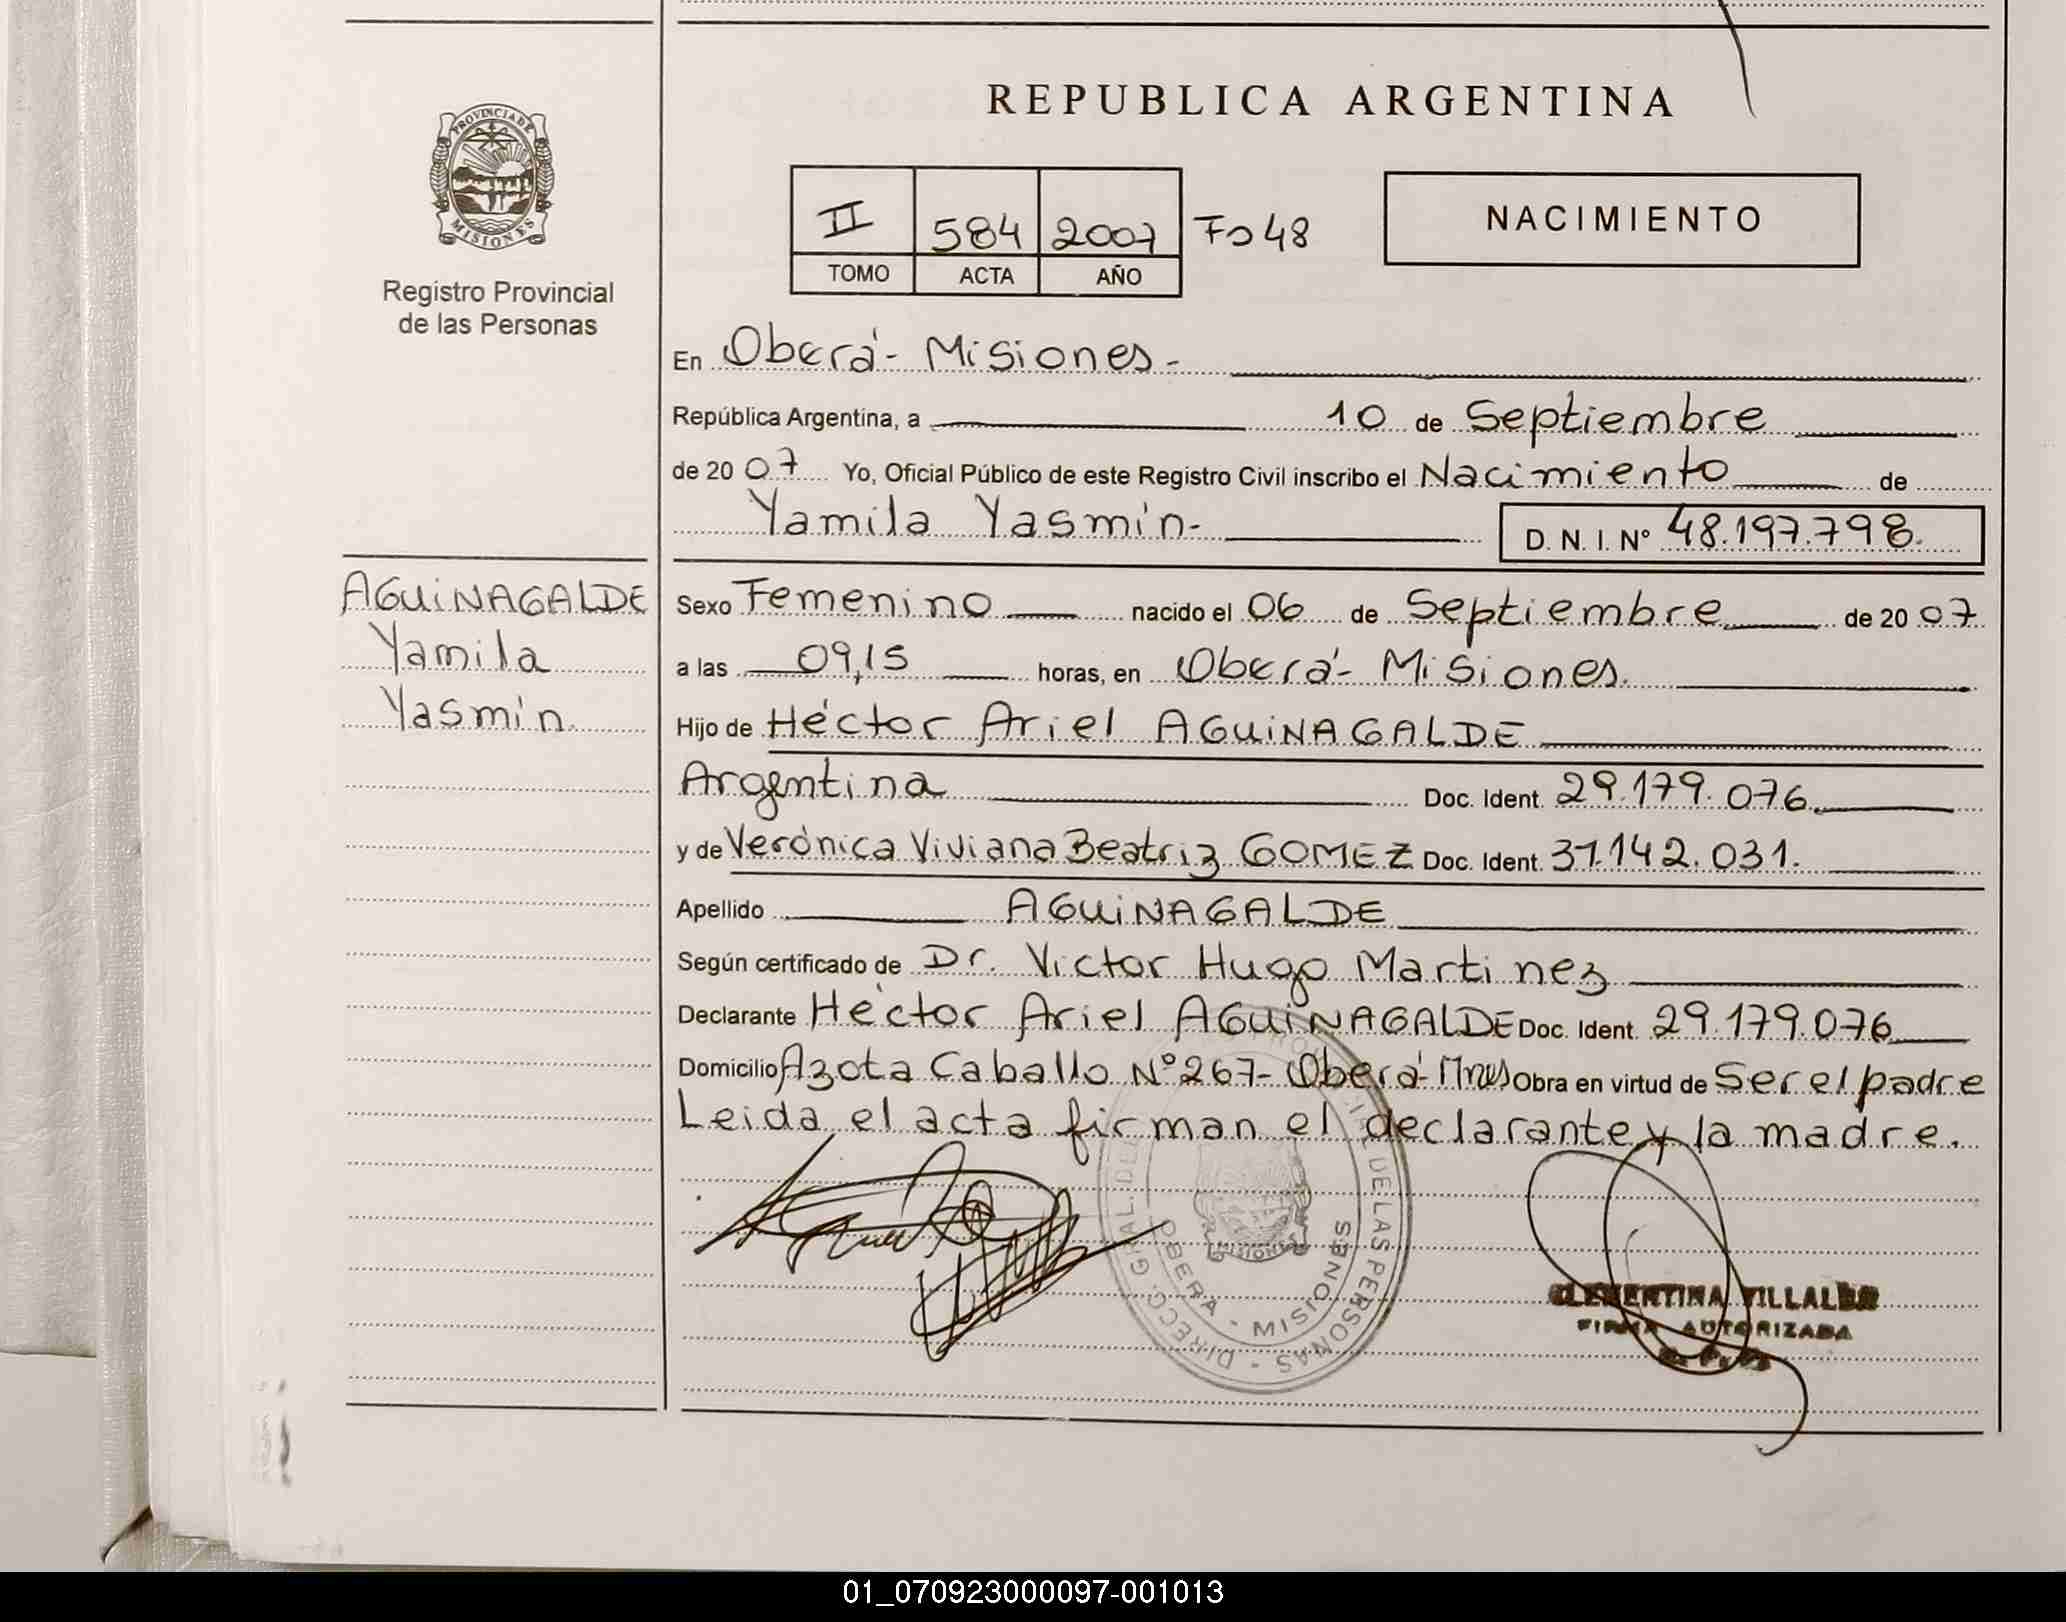 REPUBLICA ARGENTINA
PROVINCIA DE
MISIONES
Registro Provincial
de las Personas
II 584 2007 Fo 48
TOMO ACTA AÑO
NACIMIENTO
En Oberá- Misiones-
República Argentina, a 10 de Septiembre
de 20 07 Yo, Oficial Público de este Registro Civil inscribo el Nacimiento de
Yamila Yasmín-
D. N. I. Nº 48.197.798.
AGUiNAGALDE
Yamila
Yasmín.
Sexo Femenino nacido el 06 de Septiembre de 20 07
a las 09,15 horas, en Oberá- Misiones.
Hijo de Héctor Ariel AGUiNAGALDE
Argentina Doc. Ident. 29.179.076
y de Verónica Viviana Beatriz GOMEZ Doc. Ident. 31.142.031.
Apellido AGUiNAGALDE
Según certificado de Dr. Victor Hugo Martinez
Declarante Héctor Ariel AGUiNAGALDE Doc. Ident. 29.179.076
Domicilio Azota Caballo Nº 267- Oberá- Mnes Obra en virtud de Ser el padre
Leida el acta firman el declarante y la madre.
DE LAS PERSONAS - DIRECC. GRAL. DE
OBERA - MISIONES
MISIONES
CLEMENTINA VILLALBA
FIRMA AUTORIZADA
01_070923000097-001013